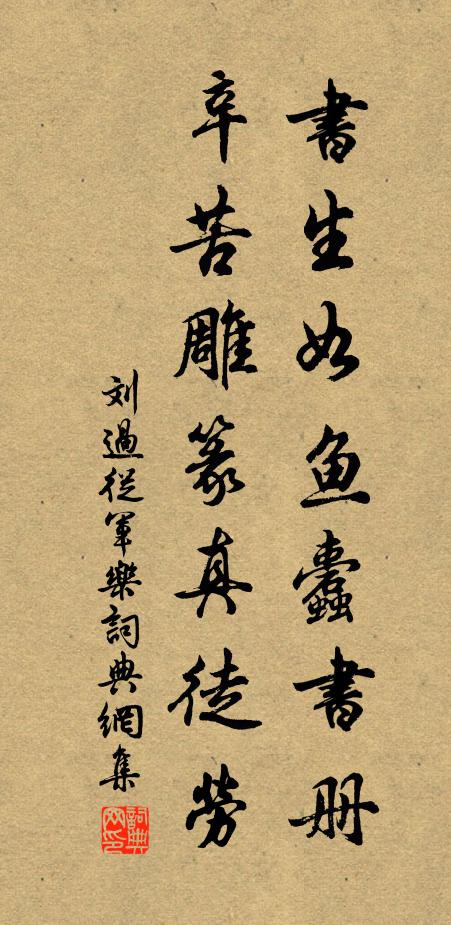 書生如鱼蠹書册
辛苦雕篆真徒勞
刘過從軍樂詞典網集
詞典網印